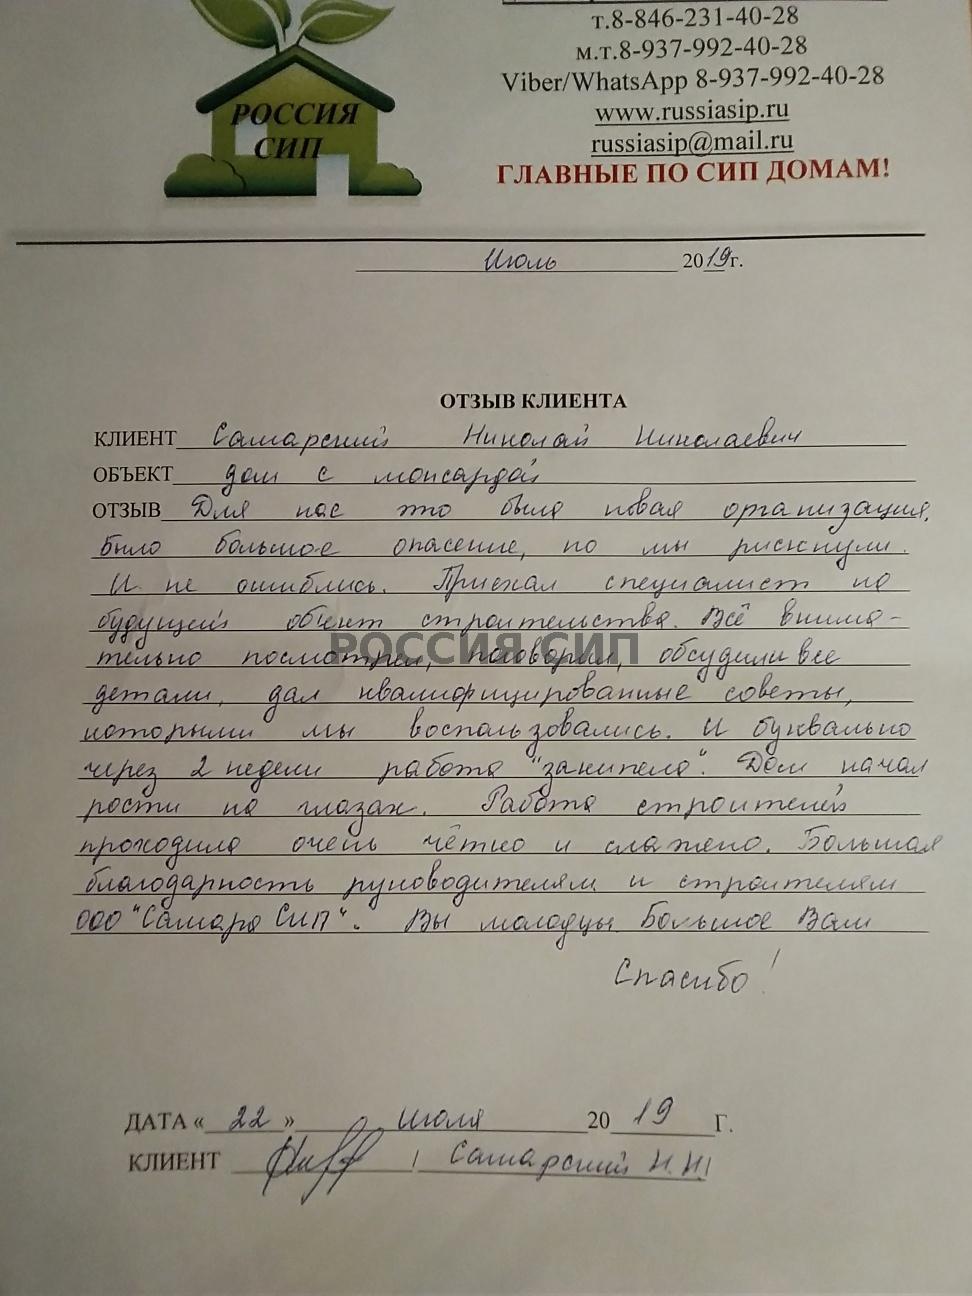 т.8-846-231-40-28
м.т.8-937-992-40-28
Viber/WhatsApp 8-937-992-40-28
www.russiasip.ru
russiasip@mail.ru
ГЛАВНЫЕ ПО СИП ДОМАМ!
РОССИЯ
СИП
Июль 2019г.
ОТЗЫВ КЛИЕНТА
КЛИЕНТ Самарский Николай Николаевич
ОБЪЕКТ дом с мансардой
ОТЗЫВ Для нас это была новая организация.
Было большое опасение, но мы рискнули.
И не ошиблись. Приехал специалист на
будущий объект строительства. Всё внима-
тельно посмотрел, поговорил, обсудили все
детали, дал квалифицированные советы,
которыми мы воспользовались. И буквально
через 2 недели работа "закипела". Дом начал
рости на глазах. Работа строителей
проходила очень чётко и слажено. Большая
благодарность руководителям и строителям
ООО "Самара СИП". Вы молодцы. Большое Вам
Спасибо!
РОССИЯ СИП
ДАТА « 22 » Июля 2019 Г.
КЛИЕНТ / Самарский Н.Н./